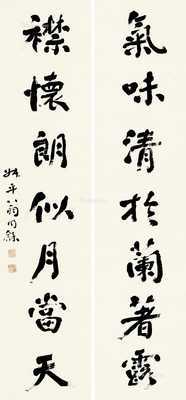 氣味清於蘭著露
襟懷朗似月當天
叔平翁同龢